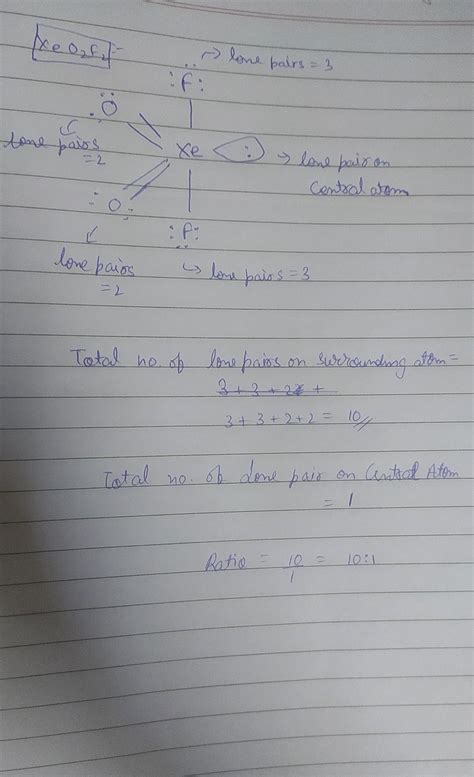 XeO₂F₂:-
→ lone pairs = 3
:F:
O
lone pairs
= 2
Xe
:
→ lone pair on
Central atom
:O:
:F:
lone pairs
= 2
→ lone pairs = 3
Total no. of lone pairs on surrounding atom =
3 + 3 + 2 +
3 + 3 + 2 + 2 = 10
Total no. of lone pair on Central Atom
= 1
Ratio = 10/1 = 10:1